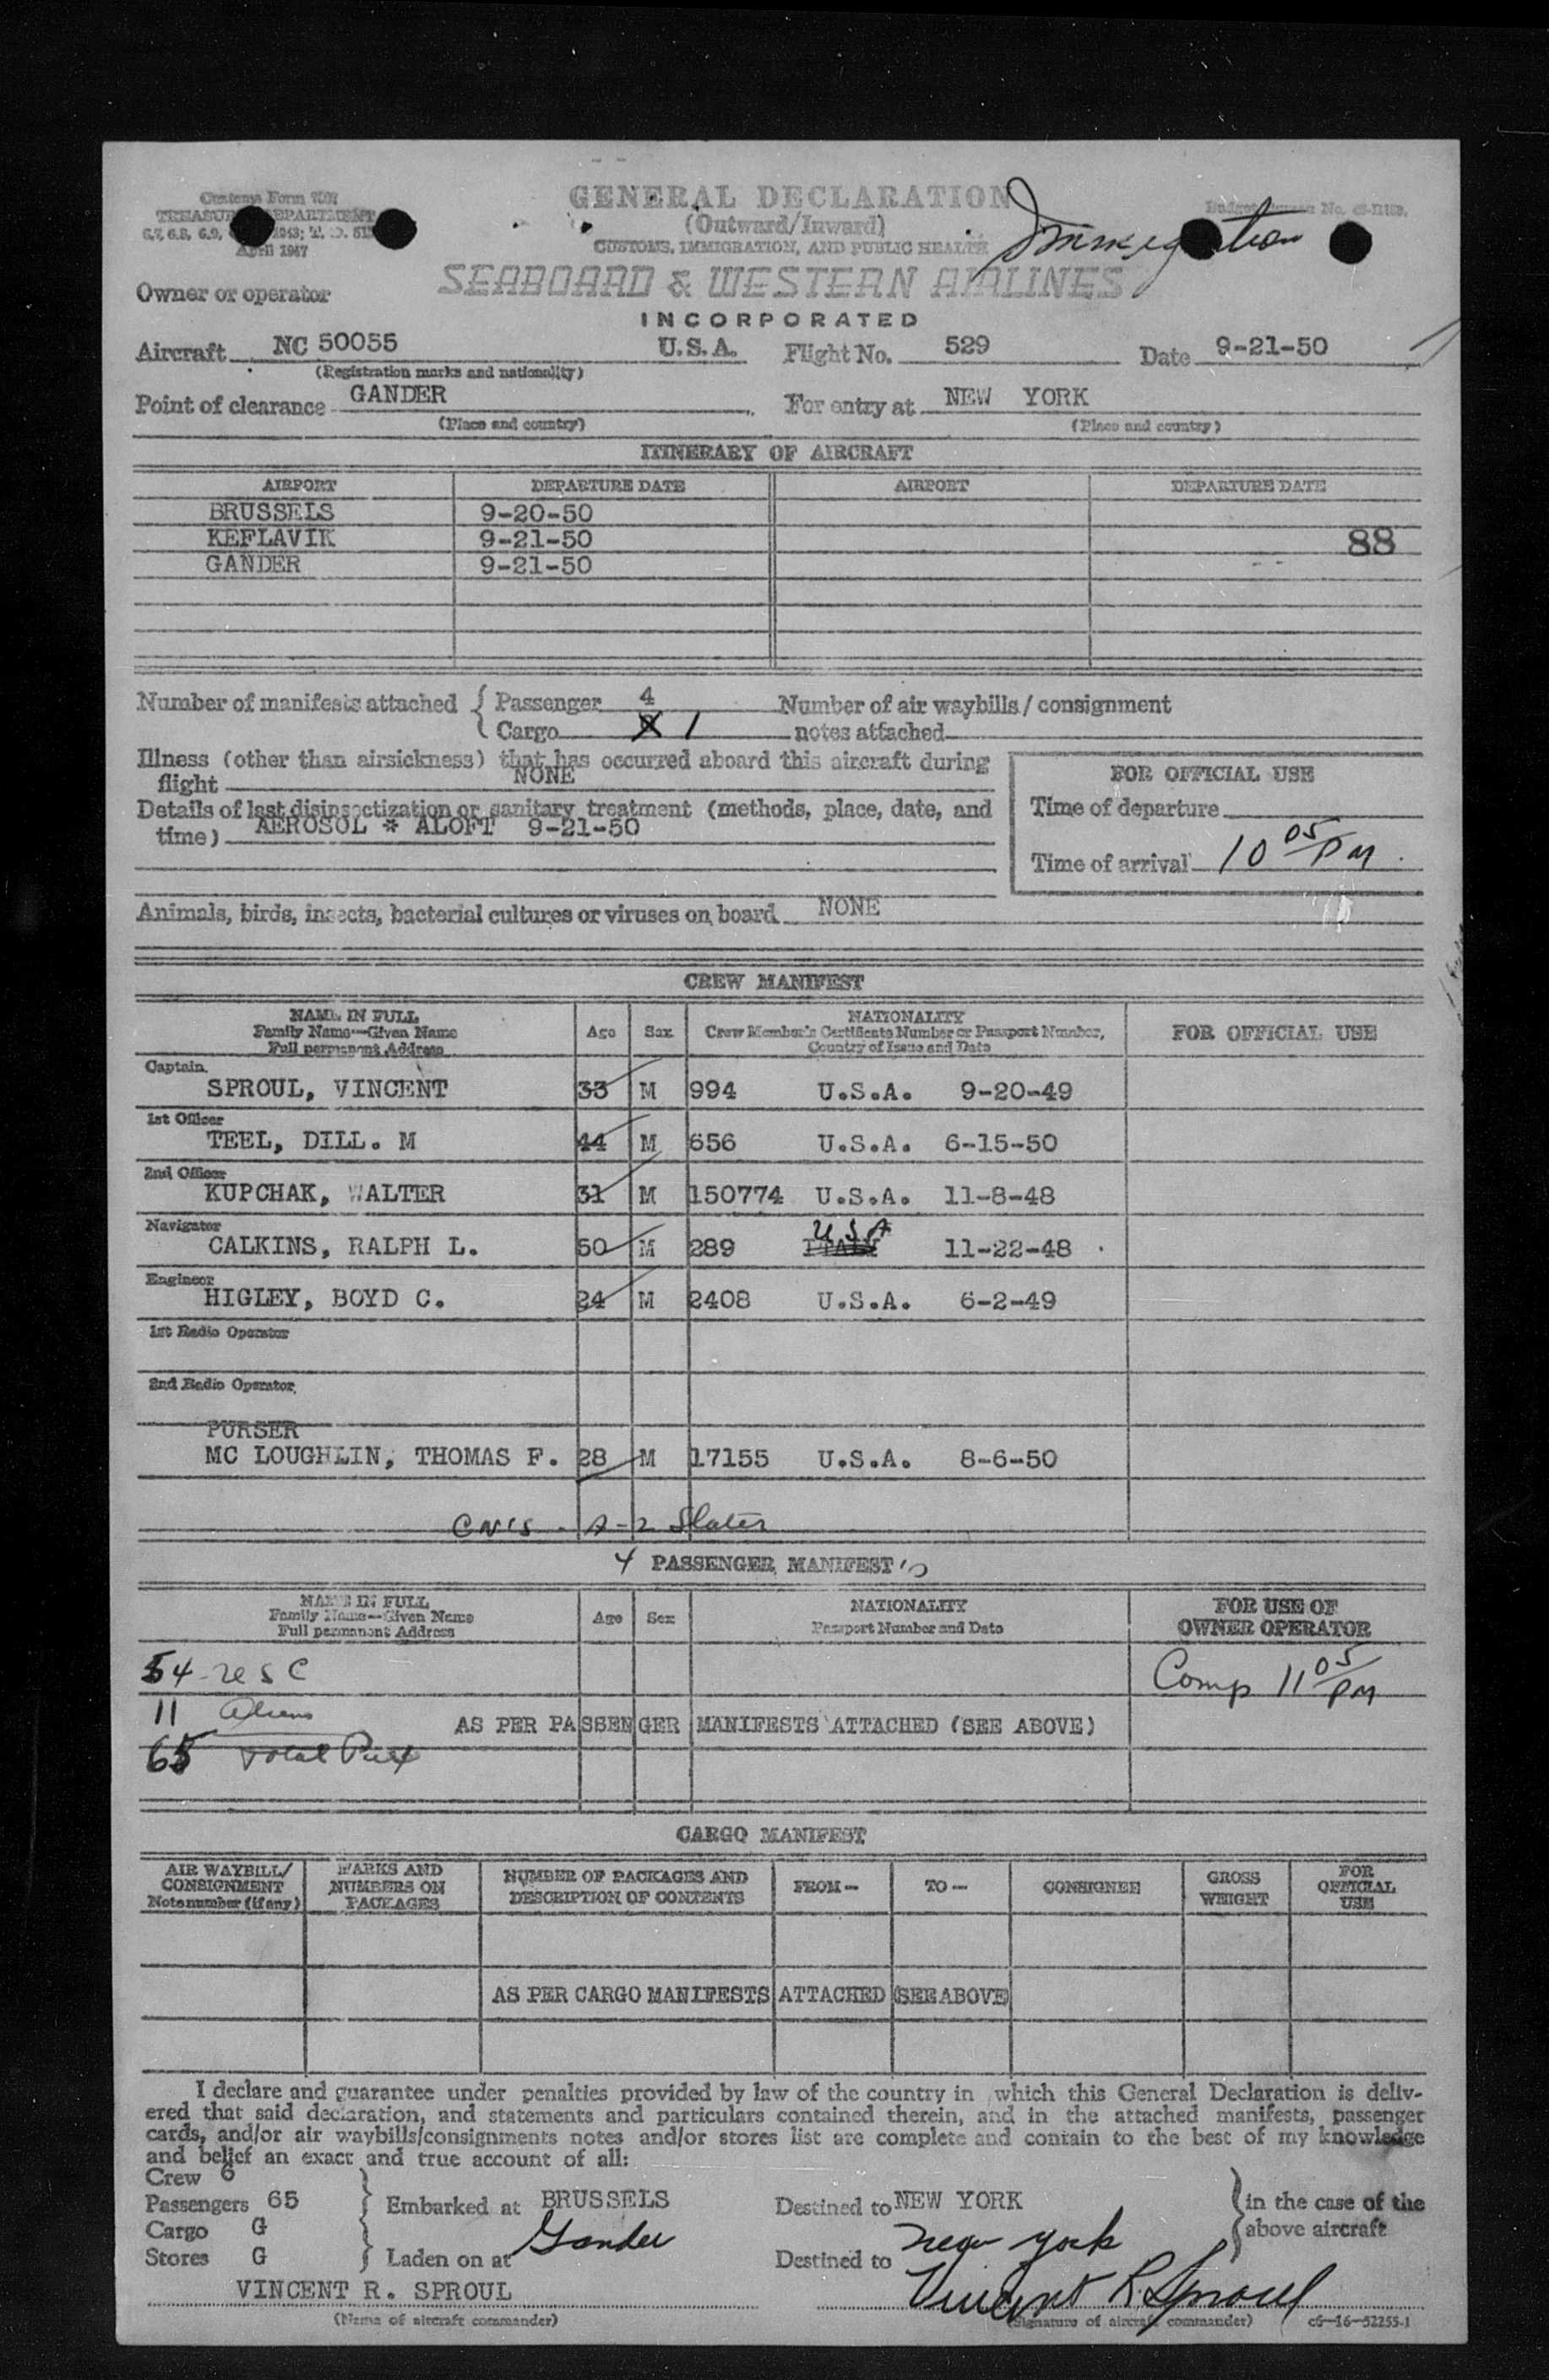 GENERAL DECLARATION
(Outward/Inward)
CUSTOMS, IMMIGRATION, AND PUBLIC HEALTH
Immigration
Customs Form
TREASURY DEPARTMENT
April 1947
SEABOARD & WESTERN AIRLINES
INCORPORATED
Owner or operator
Aircraft NC 50055 U.S.A. Flight No. 529 Date 9-21-50
(Registration marks and nationality)
Point of clearance GANDER For entry at NEW YORK
(Place and country) (Place and country)
ITINERARY OF AIRCRAFT
AIRPORT DEPARTURE DATE AIRPORT DEPARTURE DATE
BRUSSELS 9-20-50
KEFLAVIK 9-21-50 88
GANDER 9-21-50
Number of manifests attached { Passenger 4 Number of air waybills/consignment
Cargo 1 notes attached
Illness (other than airsickness) that has occurred aboard this aircraft during
flight NONE
Details of last disinsectization or sanitary treatment (methods, place, date, and
time) AEROSOL * ALOFT 9-21-50
FOR OFFICIAL USE
Time of departure
Time of arrival 10 05 PM
Animals, birds, insects, bacterial cultures or viruses on board NONE
CREW MANIFEST
NAME IN FULL
Family Name—Given Name
Full permanent Address
Age Sex
NATIONALITY
Crew Member's Certificate Number or Passport Number,
Country of Issue and Date
FOR OFFICIAL USE
Captain
SPROUL, VINCENT 33 M 994 U.S.A. 9-20-49
1st Officer
TEEL, DILL. M 44 M 656 U.S.A. 6-15-50
2nd Officer
KUPCHAK, WALTER 31 M 150774 U.S.A. 11-8-48
Navigator USA
CALKINS, RALPH L. 50 M 289 ITALY 11-22-48
Engineer
HIGLEY, BOYD C. 24 M 2408 U.S.A. 6-2-49
1st Radio Operator
2nd Radio Operator
PURSER
MC LOUGHLIN, THOMAS F. 28 M 17155 U.S.A. 8-6-50
Slater
4 PASSENGER MANIFEST's
NAME IN FULL
Family Name—Given Name
Full permanent Address
Age Sex
NATIONALITY
Passport Number and Date
FOR USE OF
OWNER OPERATOR
54 - USC Comp 11 05 PM
11 Aliens
AS PER PASSENGER MANIFESTS ATTACHED (SEE ABOVE)
65 Total
CARGO MANIFEST
AIR WAYBILL/
CONSIGNMENT
Note number (if any)
MARKS AND
NUMBERS ON
PACKAGES
NUMBER OF PACKAGES AND
DESCRIPTION OF CONTENTS
FROM— TO— CONSIGNEE
GROSS
WEIGHT
FOR
OFFICIAL
USE
AS PER CARGO MANIFESTS ATTACHED (SEE ABOVE)
I declare and guarantee under penalties provided by law of the country in which this General Declaration is deliv-
ered that said declaration, and statements and particulars contained therein, and in the attached manifests, passenger
cards, and/or air waybills/consignments notes and/or stores list are complete and contain to the best of my knowledge
and belief an exact and true account of all:
Crew 6
Passengers 65 } Embarked at BRUSSELS Destined to NEW YORK } in the case of the
Cargo G above aircraft
Stores G } Laden on at Gander Destined to New York
VINCENT R. SPROUL Vincent R. Sproul
(Name of aircraft commander) (Signature of aircraft commander) c6-16-52255-1